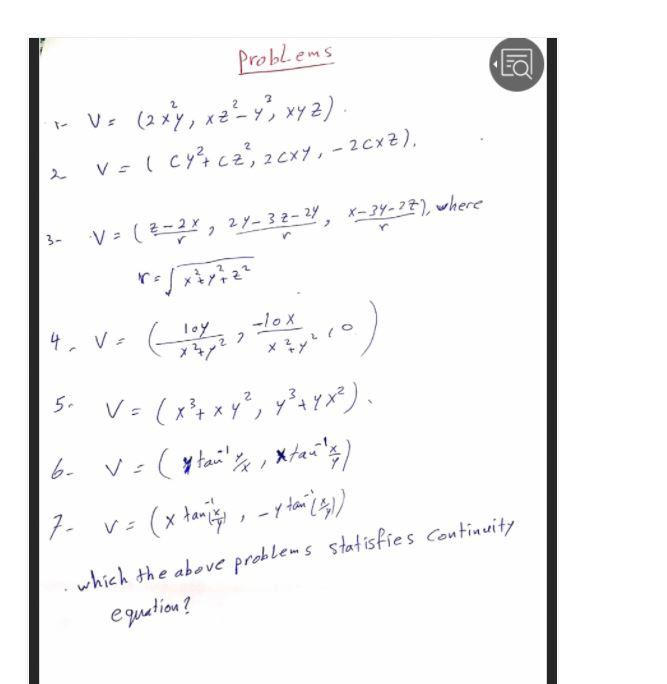 Problems
1- V = (2x²y, xz² - y³, xyz).
2 V = (cy² + cz², 2cxy, -2cxz),
3- V = (z-2x/r, 2y-3z-2y/r, x-3y-2z/r), where
r = √x²+y²+z²
4. V = (10y/x²+y², -10x/x²+y², 0)
5. V = (x³+xy², y³+yx²).
6- V = (y tan⁻¹ y/x, x tan⁻¹ x/y)
7- V = (x tan⁻¹(x/y), -y tan⁻¹(x/y))
. which the above problems statisfies continuity
equation?